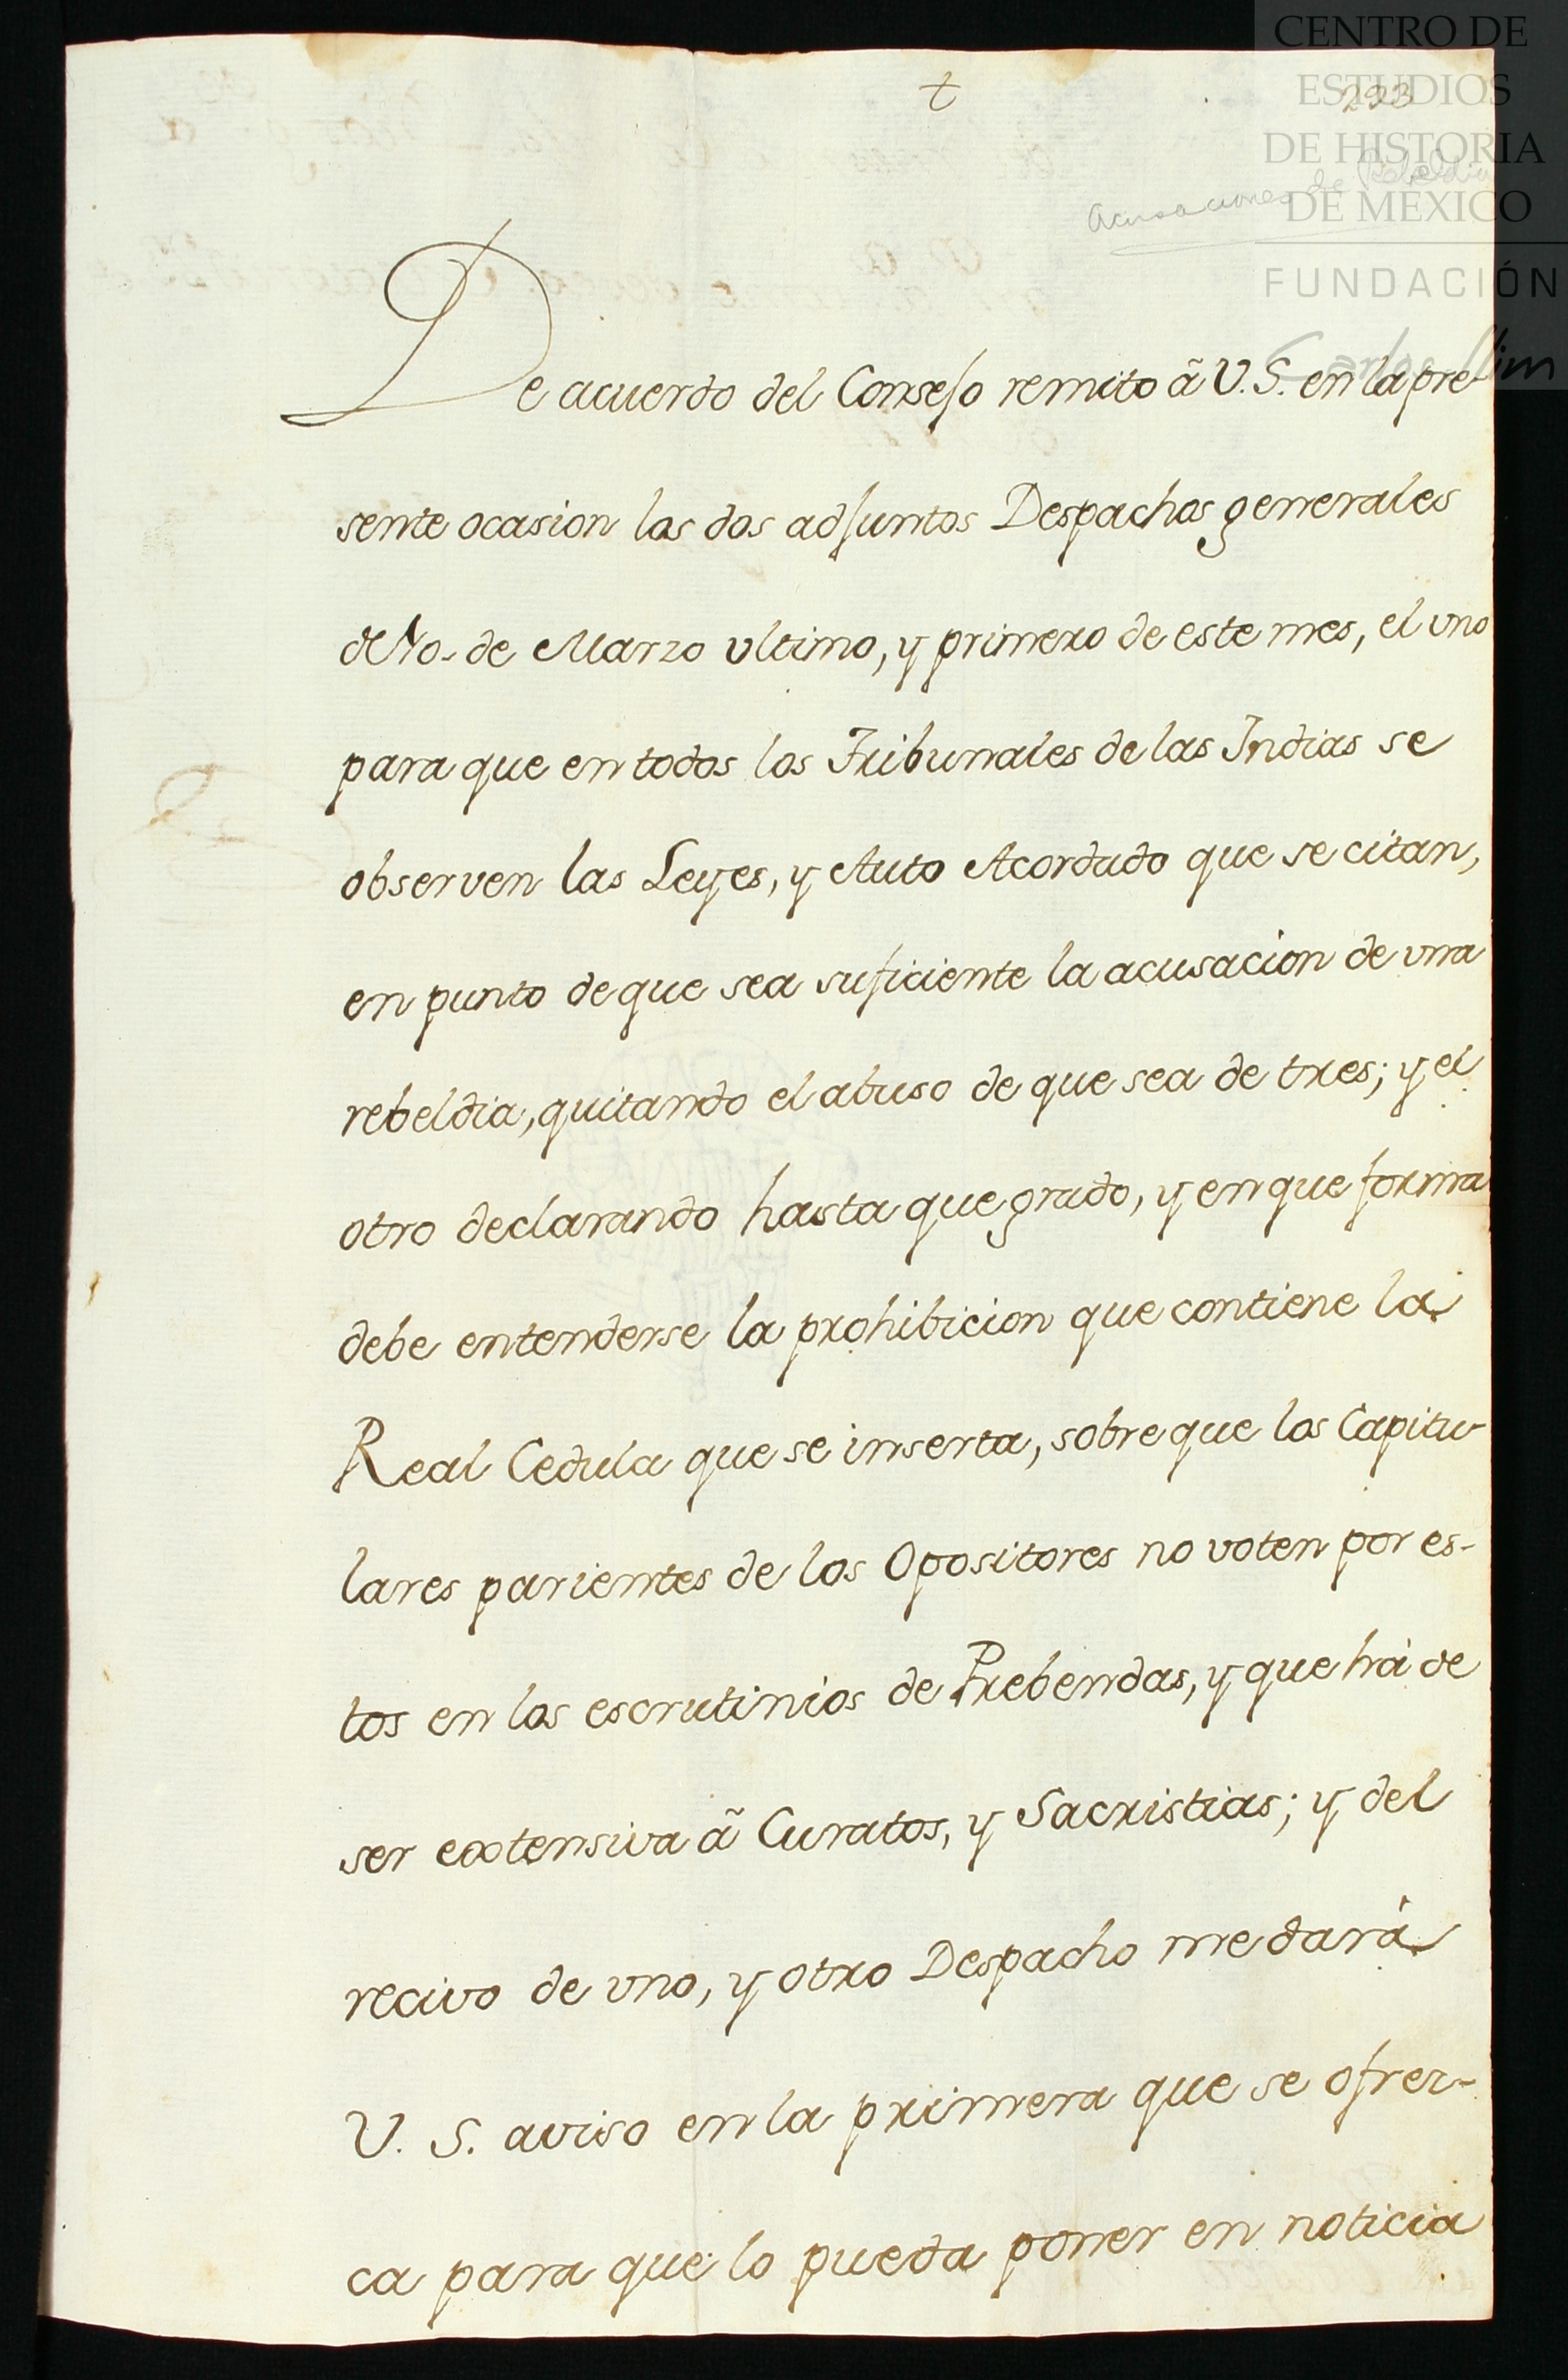 CENTRO DE
ESTUDIOS
DE HISTORIA
DE MÉXICO
FUNDACIÓN
Carlos Slim
t
293
acusaciones de Rebeldia
De acuerdo del Consejo remito ã V. S. en la pre-
sente ocasion los dos adjuntos Despachos generales
de de Marzo ultimo, y primero de este mes, el uno
para que en todos los Tribunales de las Indias se
observen las Leyes, y Auto Acordado que se citan,
en punto de que sea suficiente la acusacion de una
rebeldia, quitando el abuso de que sea de tres; y el
otro declarando hasta que grado, y en que forma
debe entenderse la prohibicion que contiene la
Real Cedula que se inserta, sobre que los Capitu-
lares parientes de los Opositores no voten por es-
tos en los escrutinios de Prebendas, y que há de
ser extensiva ã Curatos, y Sacristias; y del
recivo de uno, y otro Despacho me dará
V. S. aviso en la primera que se ofrez-
ca para que lo pueda poner en noticia